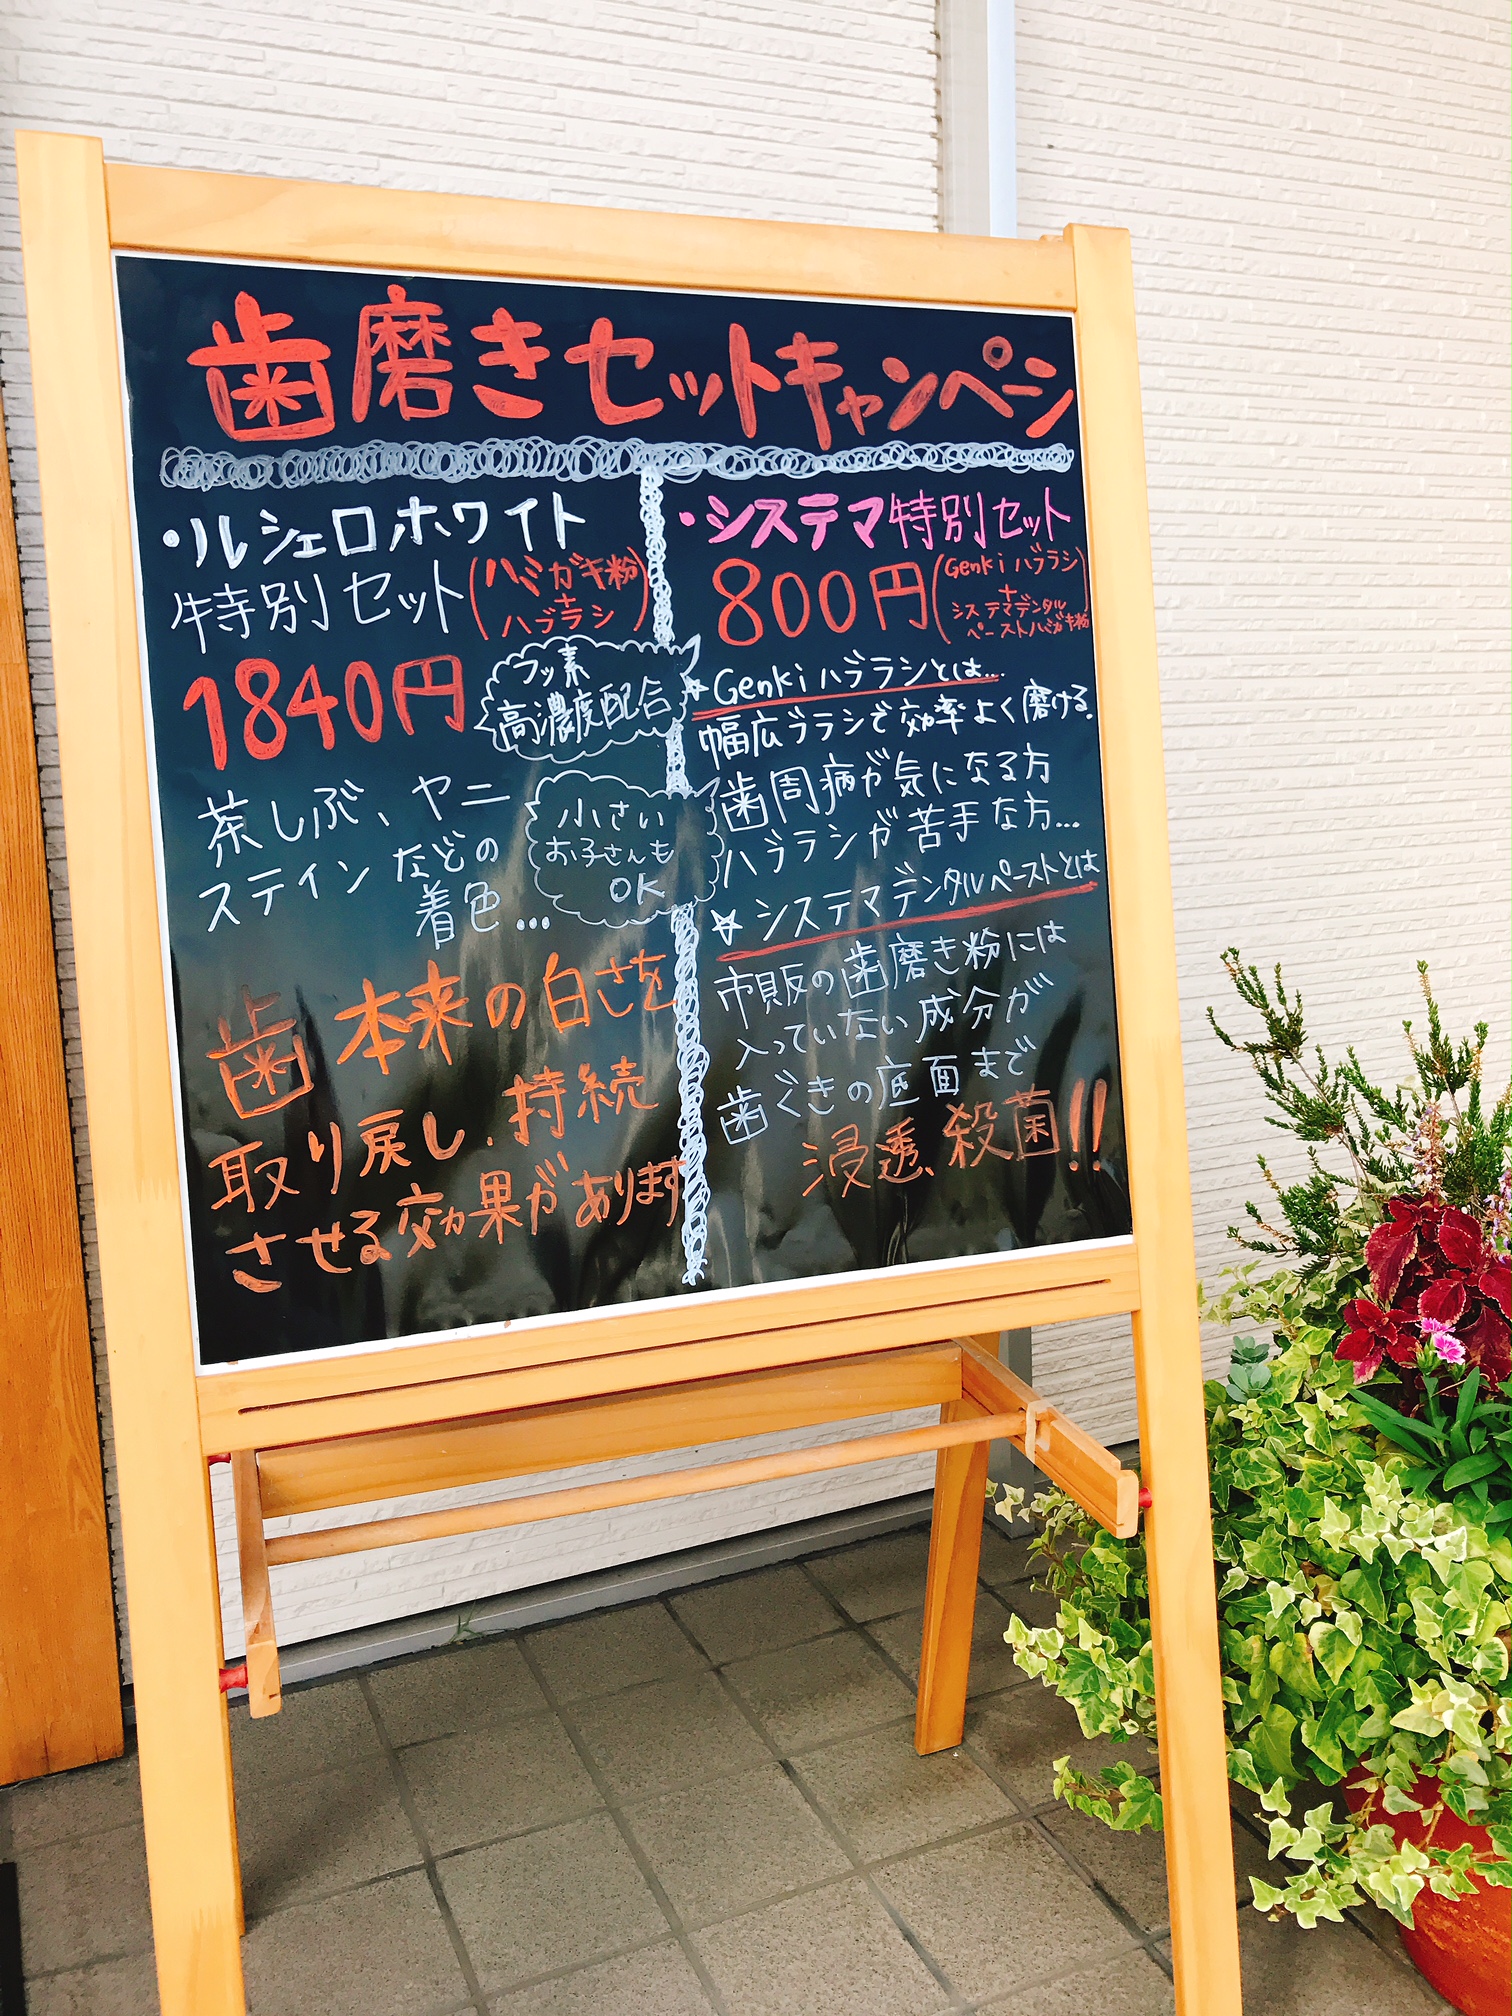 歯磨きセットキャンペーン
・ルシェロホワイト
特別セット(ハミガキ粉
+
ハブラシ)
1840円
フッ素
高濃度配合
茶しぶ、ヤニ
ステインなどの
着色…
小さい
お子さんも
OK
歯本来の白さを
取り戻し、持続
させる効果があります
・システマ特別セット
800円(Genkiハブラシ
+
システマデンタル
ペーストハミガキ粉)
☆Genkiハブラシとは…
幅広ブラシで効率よく磨ける。
歯周病が気になる方
ハブラシが苦手な方…
☆システマデンタルペーストとは
市販の歯磨き粉には
入っていない成分が
歯ぐきの底面まで
浸透、殺菌!!